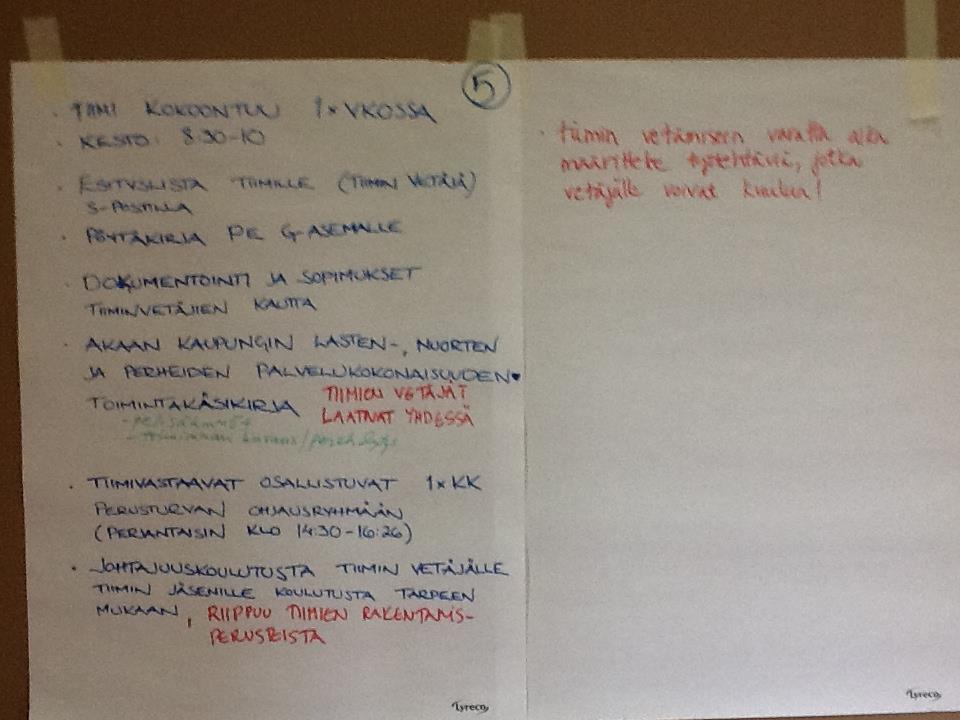 5
· TIIMI KOKOONTUU 1 x VKOSSA
· KESTO: 8:30-10
· ESITYSLISTA TIIMILLE (TIIMIN VETÄJÄ)
S-POSTILLA
· PÖYTÄKIRJA PE G-ASEMALLE
· DOKUMENTOINTI JA SOPIMUKSET
TIIMINVETÄJIEN KAUTTA
· AKAAN KAUPUNGIN LASTEN-, NUORTEN
JA PERHEIDEN PALVELUKOKONAISUUDEN
TOIMINTAKÄSIKIRJA TIIMIEN VETÄJÄT
LAATIVAT YHDESSÄ
- pelisäännöt
- toiminnan kuvaus/perehdytys
· TIIMIVASTAAVAT OSALLISTUVAT 1 x KK
PERUSTURVAN OHJAUSRYHMÄÄN
(PERJANTAISIN KLO 14:30-16:26)
· JOHTAJUUSKOULUTUSTA TIIMIN VETÄJÄLLE
TIIMIN JÄSENILLE KOULUTUSTA TARPEEN
MUKAAN, RIIPPUU TIIMIEN RAKENTAMIS-
PERUSTEISTA
Lyreco
· tiimin vetämiseen varattu aika
määrittelee työtehtäviä, jotka
vetäjälle voivat kuulua!
Lyreco